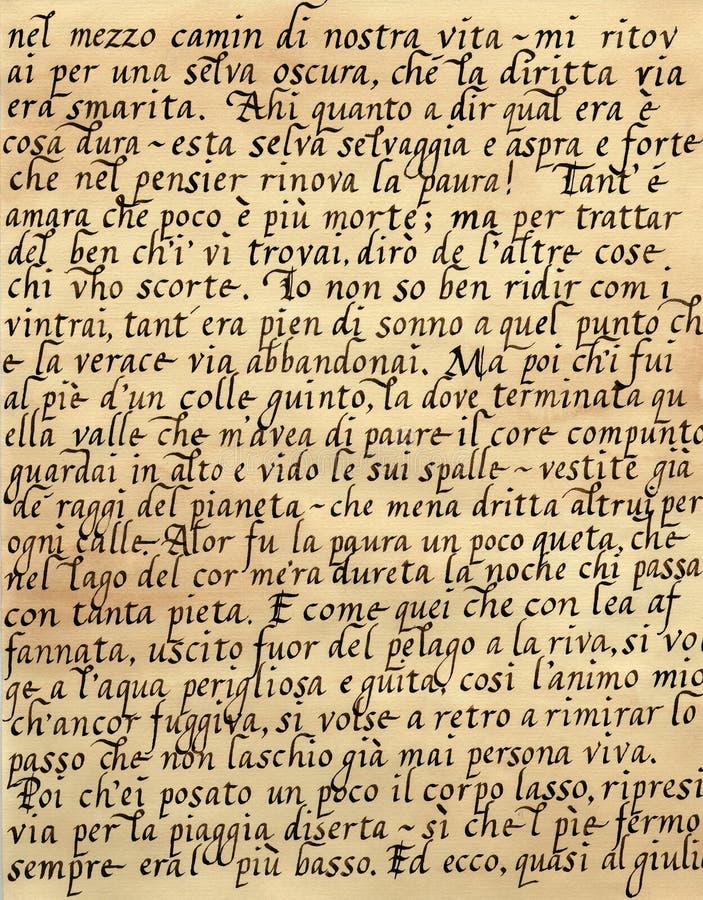 nel mezzo camin di nostra vita ~ mi ritov
ai per una selva oscura, ché la diritta via
era smarita. Ahi quanto a dir qual era è
cosa dura ~ esta selva selvaggia e aspra e forte
che nel pensier rinova la paura! Tant' é
amara che poco è più morte; ma per trattar
del ben ch'i' vi trovai, dirò de l'altre cose
chi vho scorte. Io non so ben ridir com i
vintrai, tant' era pien di sonno a quel punto ch
e la verace via abbandonai. Ma poi ch'i fui
al piè d'un colle guinto, la dove terminata qu
ella valle che m'avea di paure il core compunto
guardai in alto e vido le sui spalle ~ vestite già
de raggi del pianeta ~ che mena dritta altrui per
ogni calle. Alor fu la paura un poco queta, che
nel lago del cor me'ra dureta la noche chi passa
con tanta pieta. E come quei che con lea af
fannata, uscito fuor del pelago a la riva, si vol
ge a l'aqua perigliosa e guita, cosi l'animo mio
ch'ancor fuggiva, si volse a retro a rimirar lo
passo che non laschio già mai persona viva.
Poi ch'ei posato un poco il corpo lasso, ripresi
via per la piaggia diserta ~ sì che l pìe fermo
sempre era l più basso. Ed ecco, quasi al giuli